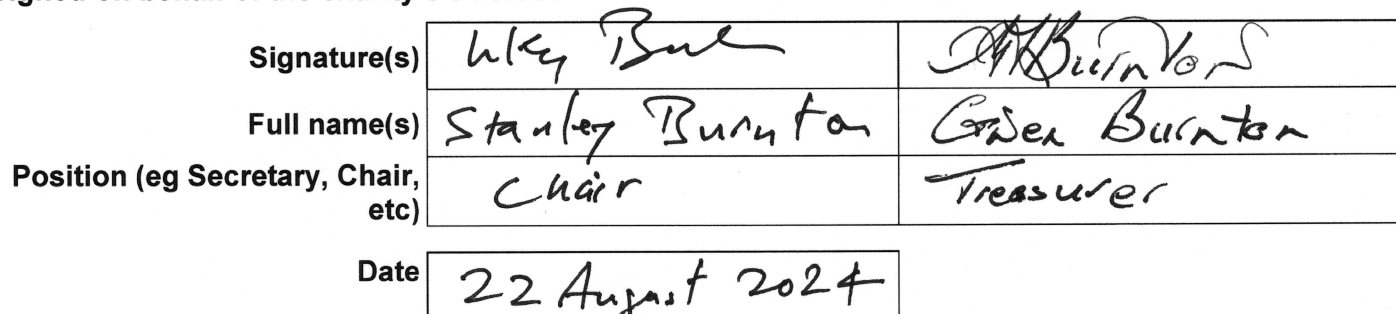 Signature(s)
Full name(s) Stanley Burnton Burnton
Position (eg Secretary, Chair, Chair Treasurer
etc)
Date 22 August 2024